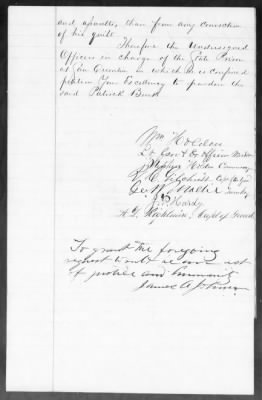 and assaults, than from any conviction
of his guilt.
Therefore the Undersigned
Officers in charge of the State Prison
at San Quentin in which he is confined
petition Your Excellency to pardon the
said Patrick Burk
Wm Holden
Lt Gov & Ex Officio Warden
Commissary
Capt of Yard
Turnkey
Hardy
Capt of Guard
To grant the forgoing
request would be an act
of justice and humanity
James A Johnson